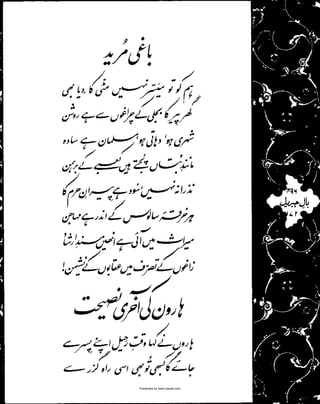 باغی مرید
ہم کو تو میسر نہیں مٹی کا دیا بھی
گھر پیر کا بجلی کے چراغوں سے ہے روشن
شہری ہو، دہاتی ہو، مسلمان ہے سادہ
مانند بتاں پجتے ہیں کعبے کے برہمن
نذرانہ نہیں، سود ہے پیران حرم کا
ہر خرقۂ سالوس کے اندر ہے مہاجن
میراث میں آئی ہے انھیں مسند ارشاد
زاغوں کے تصرف میں عقابوں کے نشیمن!
ہارون کی آخری نصیحت
ہاروں نے کہا وقت رحیل اپنے پسر سے
جائے گا کبھی تو بھی اسی راہ گزر سے
بال جبریل
Presented by www.ziaraat.com